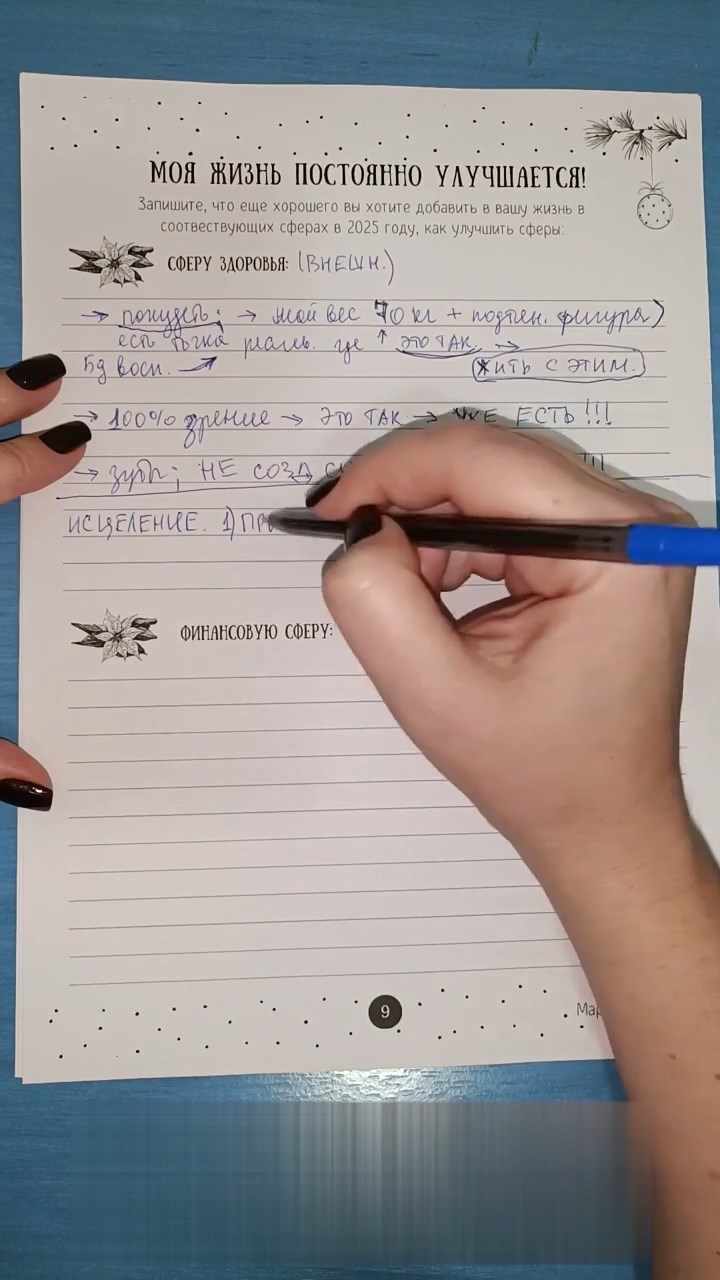 МОЯ ЖИЗНЬ ПОСТОЯННО УЛУЧШАЕТСЯ!
Запишите, что еще хорошего вы хотите добавить в вашу жизнь в
соотвествующих сферах в 2025 году, как улучшить сферы:
СФЕРУ ЗДОРОВЬЯ: (ВНЕШН.)
→ похудеть; → мой вес 70 кг + подтян. фигура)
есть точка реаль. где ↑ это ТАК →
БД восп. → жить с этим.
→ 100% зрение → это ТАК → УЖЕ ЕСТЬ !!!
→ зубы; НЕ СОЗД !!!
ИСЦЕЛЕНИЕ. 1)
ФИНАНСОВУЮ СФЕРУ:
9